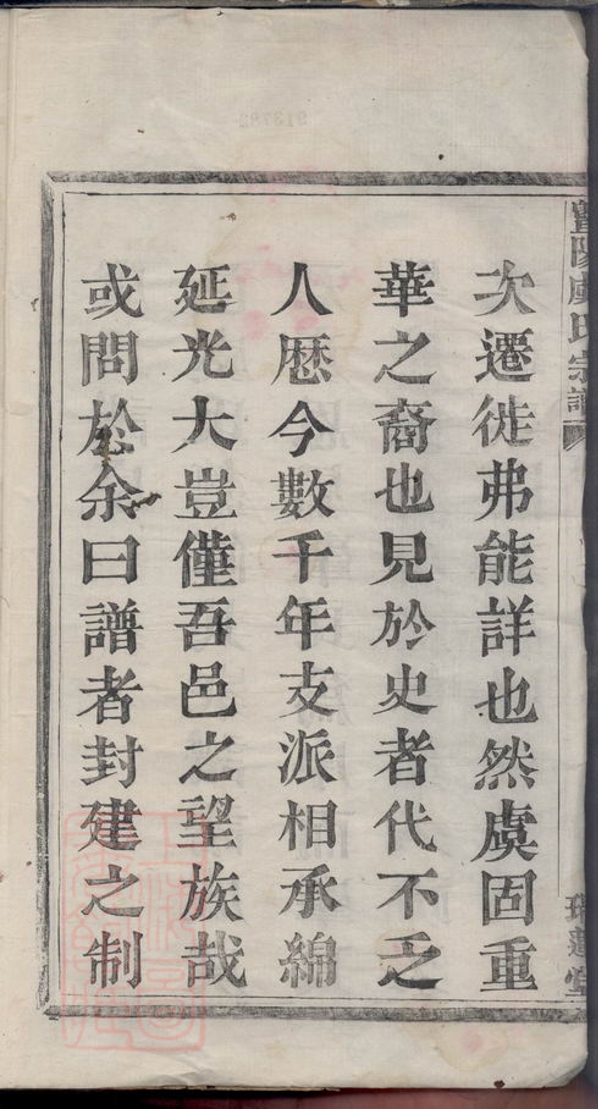 暨陽虞氏宗譜
次遷徙弗能詳也然虞固重
華之裔也見於史者代不乏
人歷今數千年支派相承綿
延光大豈僅吾邑之望族哉
或問於余曰譜者封建之制